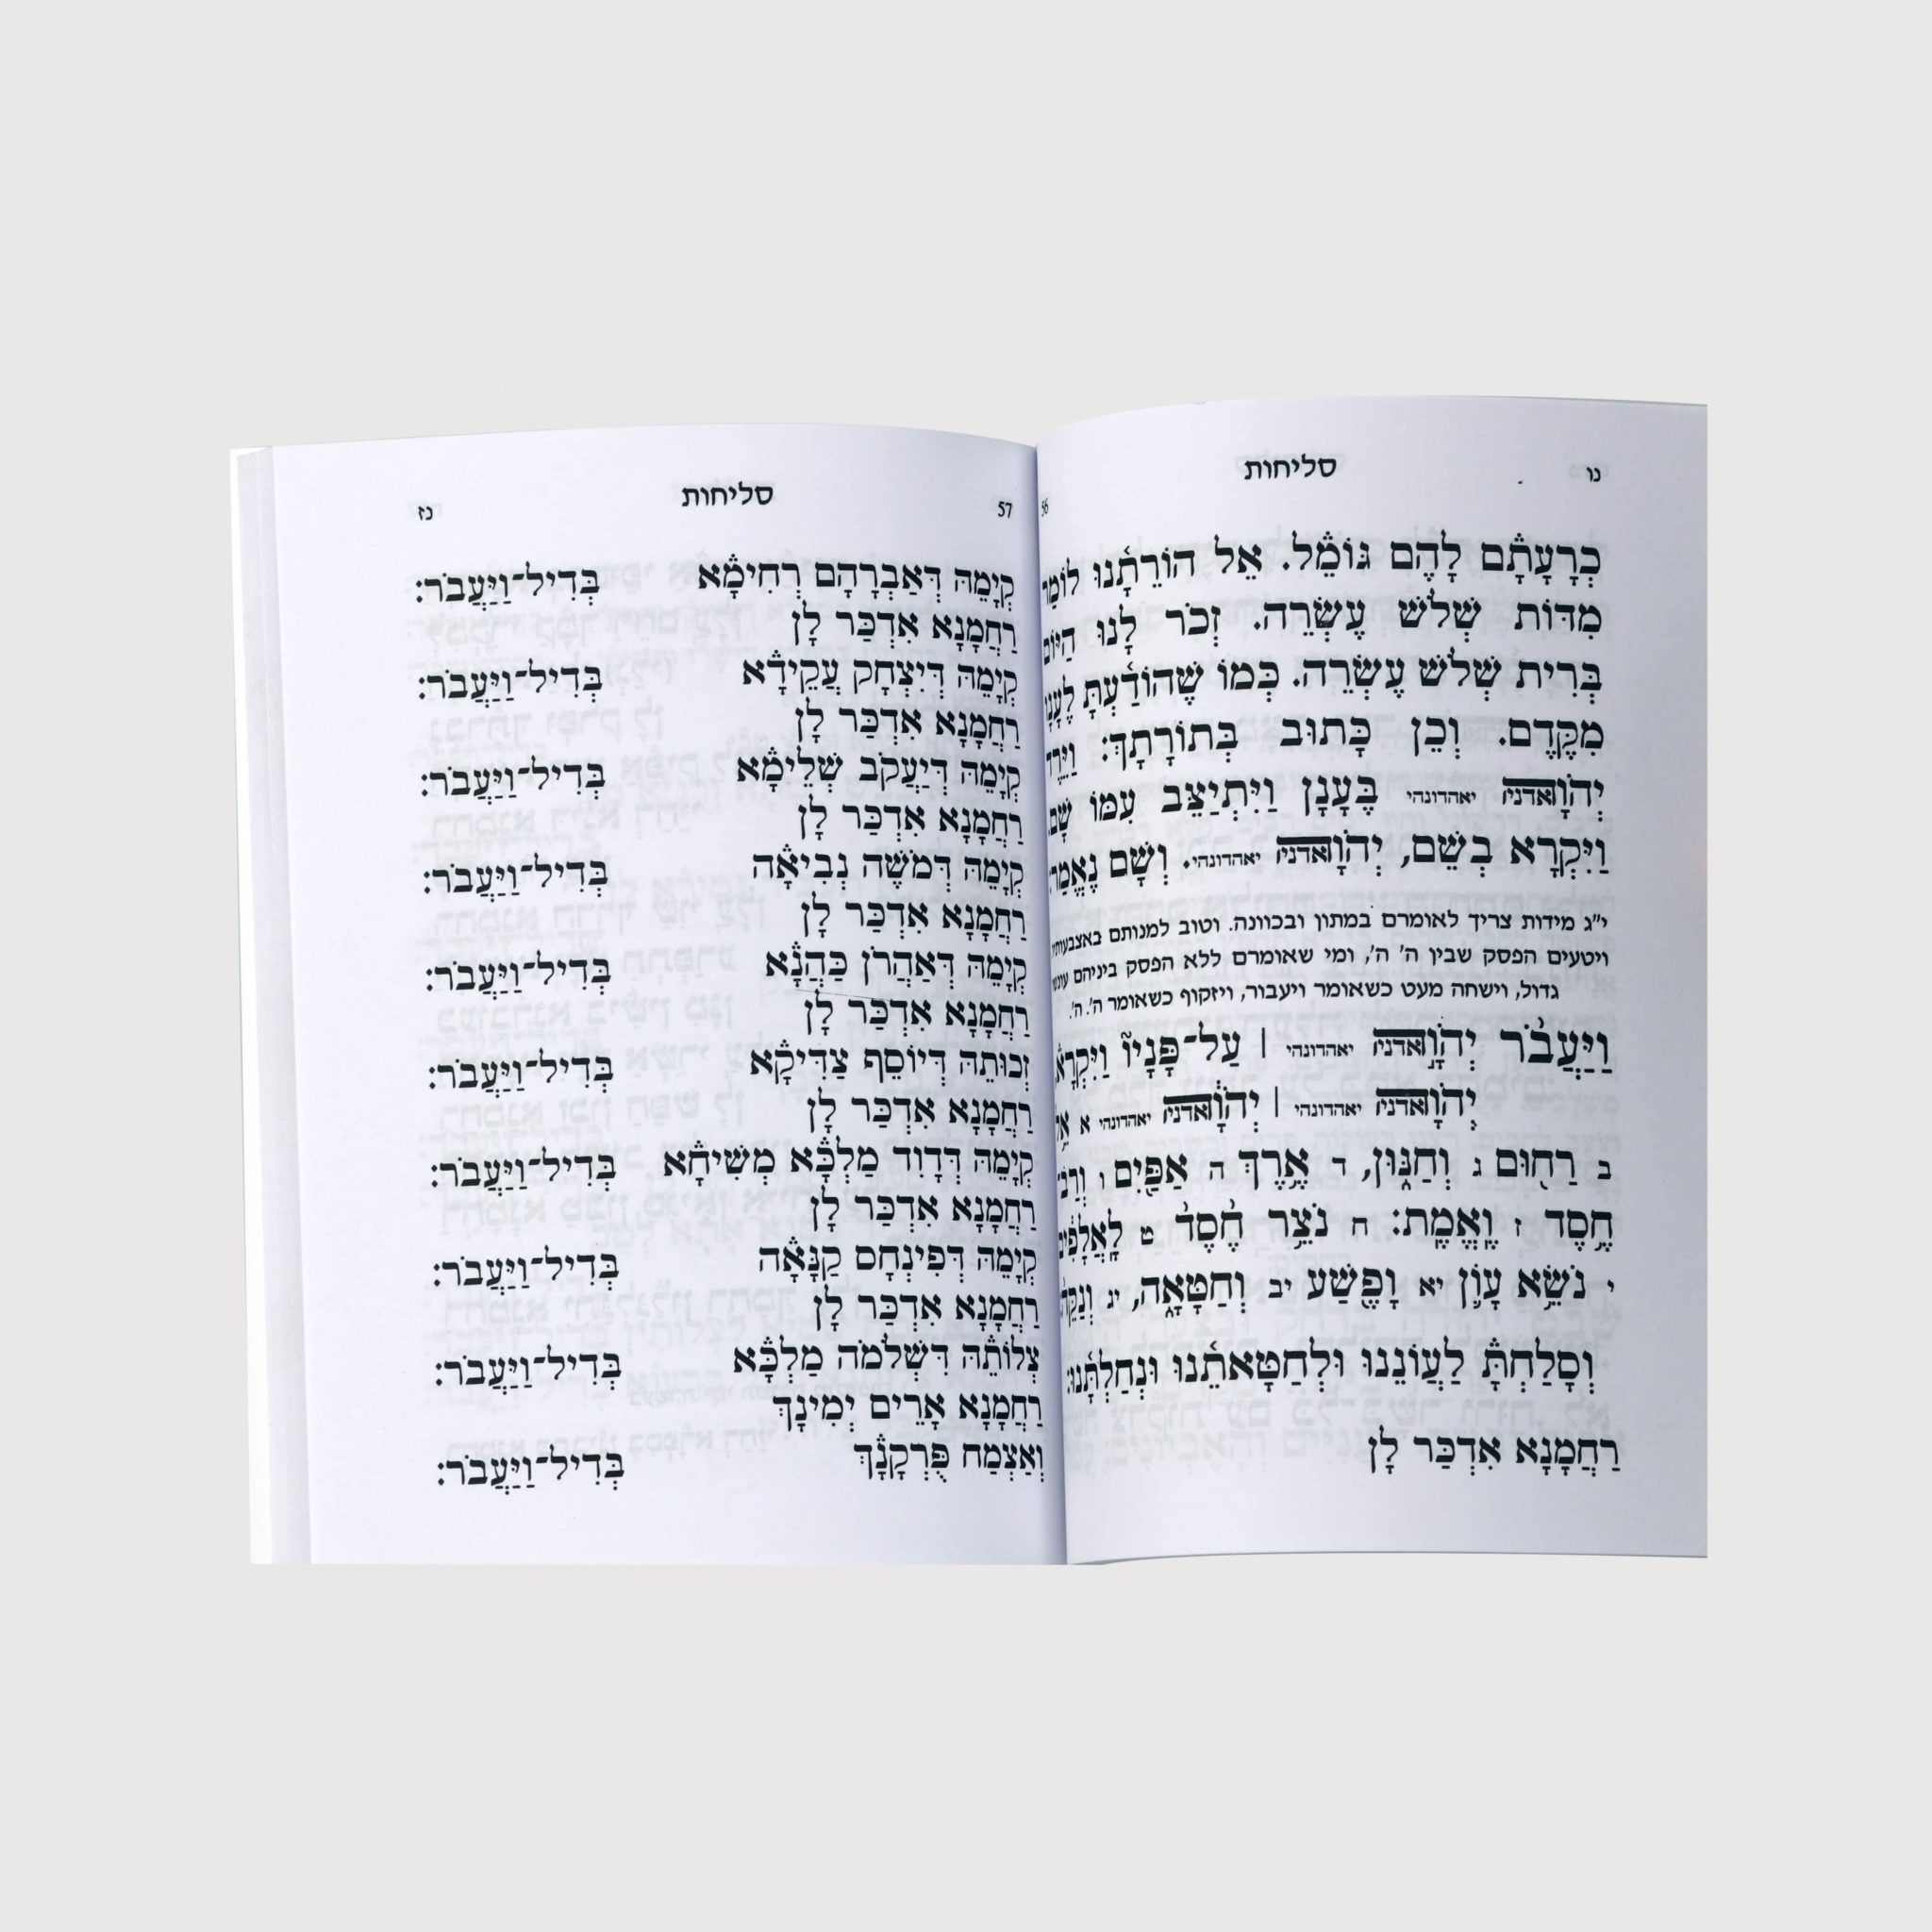 נו סליחות 56
כְּרָעָתָם לָהֶם גּוֹמֵל. אֵל הוֹרֵתָנוּ לוֹמַר
מִדּוֹת שְׁלֹשׁ עֶשְׂרֵה. זְכֹר לָנוּ הַיּוֹם
בְּרִית שְׁלֹשׁ עֶשְׂרֵה. כְּמוֹ שֶׁהוֹדַעְתָּ לֶעָנָו
מִקֶּדֶם. וְכֵן כָּתוּב בְּתוֹרָתָךְ: וַיֵּרֶד
יְהֹוָהאדני יאהדונהי בֶּעָנָן וַיִּתְיַצֵּב עִמּוֹ שָׁם.
וַיִּקְרָא בְשֵׁם, יְהֹוָהאדני יאהדונהי. וְשָׁם נֶאֱמַר:
י״ג מידות צריך לאומרם במתון ובכוונה. וטוב למנותם באצבעותיו
ויטעים הפסק שבין ה׳ ה׳, ומי שאומרם ללא הפסק ביניהם עונשו
גדול, וישחה מעט כשאומר ויעבור, ויזקוף כשאומר ה׳. ה׳.
וַיַּעֲבֹר יְהֹוָהאדני יאהדונהי | עַל־פָּנָיו וַיִּקְרָא
יְהֹוָהאדני יאהדונהי | יְהֹוָהאדני יאהדונהי א אֵל
ב רַחוּם ג וְחַנּוּן, ד אֶרֶךְ ה אַפַּיִם ו וְרַב־
חֶסֶד ז וֶאֱמֶת: ח נֹצֵר חֶסֶד ט לָאֲלָפִים
י נֹשֵׂא עָוֺן יא וָפֶשַׁע יב וְחַטָּאָה, יג וְנַקֵּה:
וְסָלַחְתָּ לַעֲוֹנֵנוּ וּלְחַטָּאתֵנוּ וּנְחַלְתָּנוּ:
רַחֲמָנָא אִדְכַּר לָן
57 סליחות נז
קְיָמֵהּ דְּאַבְרָהָם רְחִימָא בְּדִיל־וַיַּעֲבֹר:
רַחֲמָנָא אִדְכַּר לָן
קְיָמֵהּ דְּיִצְחָק עֲקֵידָא בְּדִיל־וַיַּעֲבֹר:
רַחֲמָנָא אִדְכַּר לָן
קְיָמֵהּ דְּיַעֲקֹב שְׁלֵימָא בְּדִיל־וַיַּעֲבֹר:
רַחֲמָנָא אִדְכַּר לָן
קְיָמֵהּ דְּמֹשֶׁה נְבִיאָה בְּדִיל־וַיַּעֲבֹר:
רַחֲמָנָא אִדְכַּר לָן
קְיָמֵהּ דְּאַהֲרֹן כַּהֲנָא בְּדִיל־וַיַּעֲבֹר:
רַחֲמָנָא אִדְכַּר לָן
זְכוּתֵהּ דְּיוֹסֵף צַדִּיקָא בְּדִיל־וַיַּעֲבֹר:
רַחֲמָנָא אִדְכַּר לָן
קְיָמֵהּ דְּדָוִד מַלְכָּא מְשִׁיחָא בְּדִיל־וַיַּעֲבֹר:
רַחֲמָנָא אִדְכַּר לָן
קְיָמֵהּ דְּפִינְחָס קַנָּאָה בְּדִיל־וַיַּעֲבֹר:
רַחֲמָנָא אִדְכַּר לָן
צְלוֹתֵהּ דִּשְׁלֹמֹה מַלְכָּא בְּדִיל־וַיַּעֲבֹר:
רַחֲמָנָא אָרֵים יְמִינָךְ
וְאַצְמַח פֻּרְקָנָךְ בְּדִיל־וַיַּעֲבֹר: